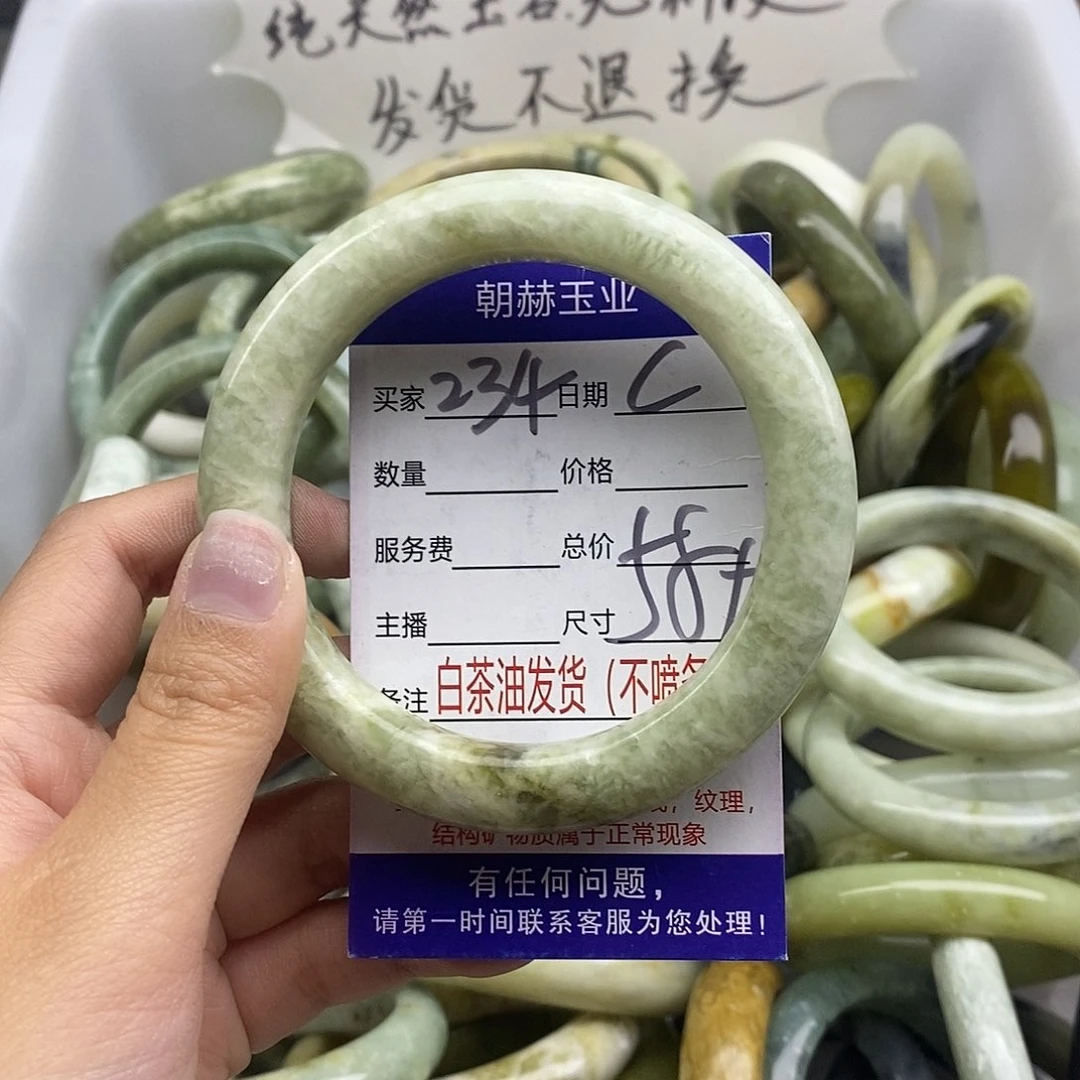 纯天然玉石.无
发货不退换
朝赫玉业
买家 234 日期 C
数量 价格
服务费 总价
主播 尺寸 58+
备注 白茶油发货(不喷
纹理,
结构矿物质属于正常现象
有任何问题,
请第一时间联系客服为您处理!